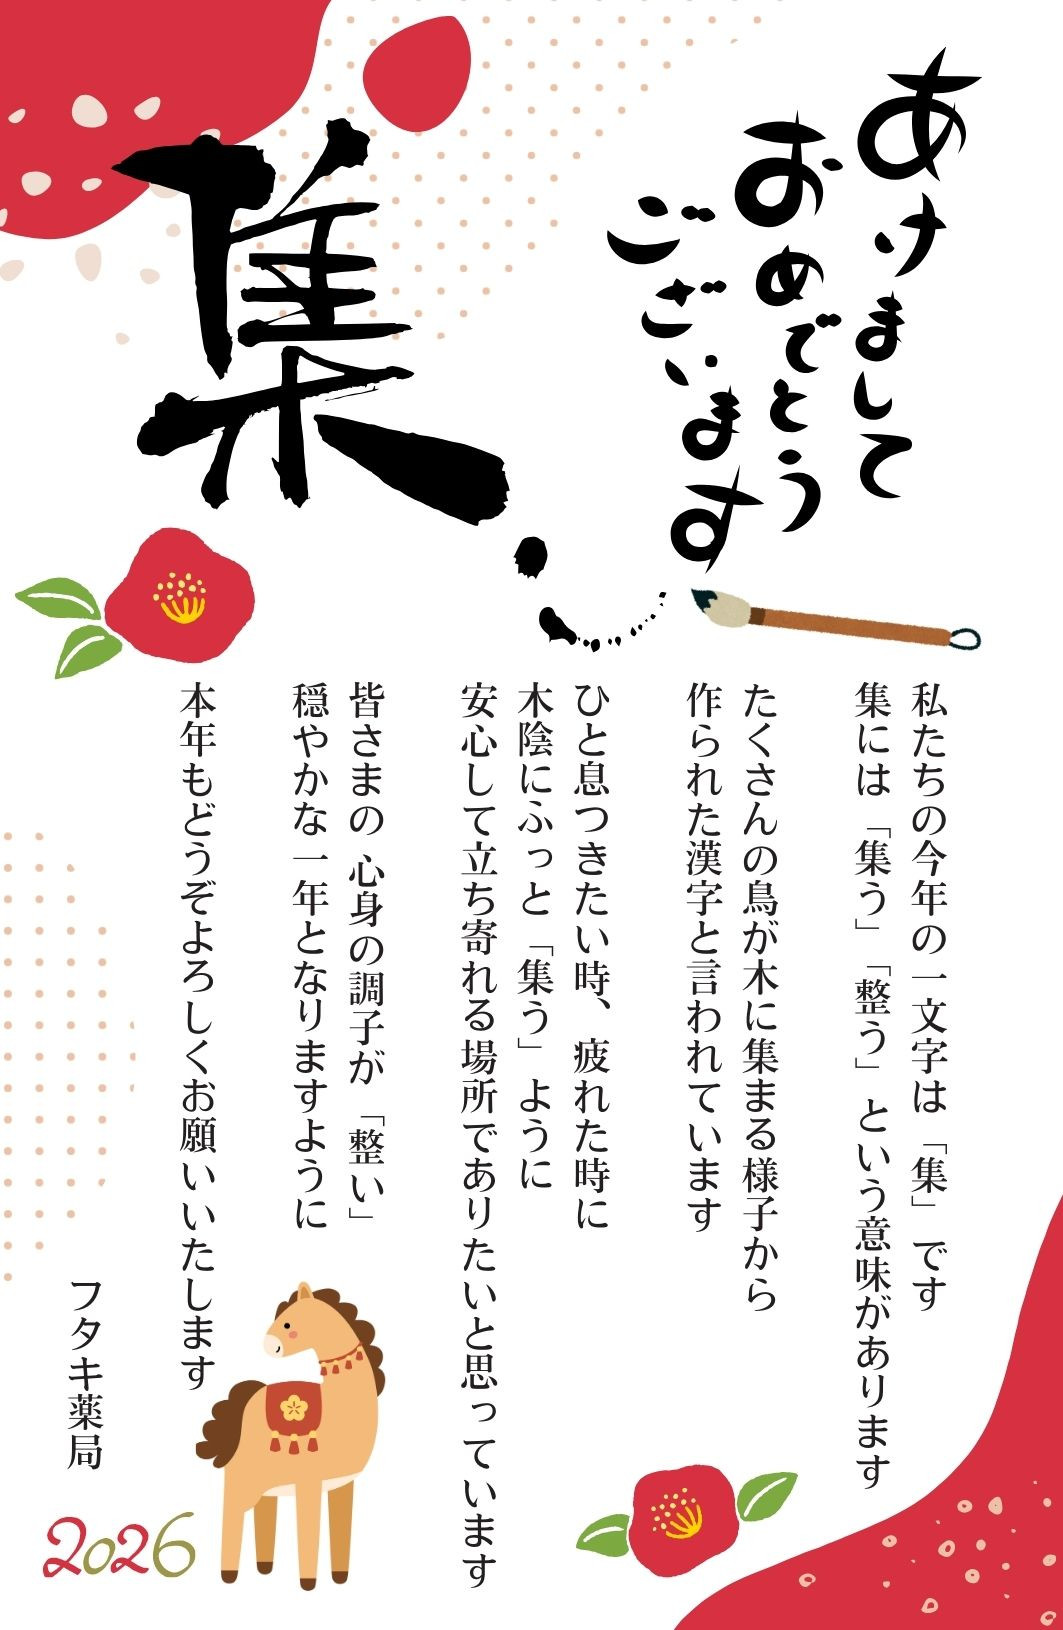 あけまして
おめでとう
ございます
集
私たちの今年の一文字は「集」です
集には「集う」「整う」という意味があります
たくさんの鳥が木に集まる様子から
作られた漢字と言われています
ひと息つきたい時、疲れた時に
木陰にふっと「集う」ように
安心して立ち寄れる場所でありたいと思っています
皆さまの 心身の調子が「整い」
穏やかな一年となりますように
本年もどうぞよろしくお願いいたします
フタキ薬局
2026